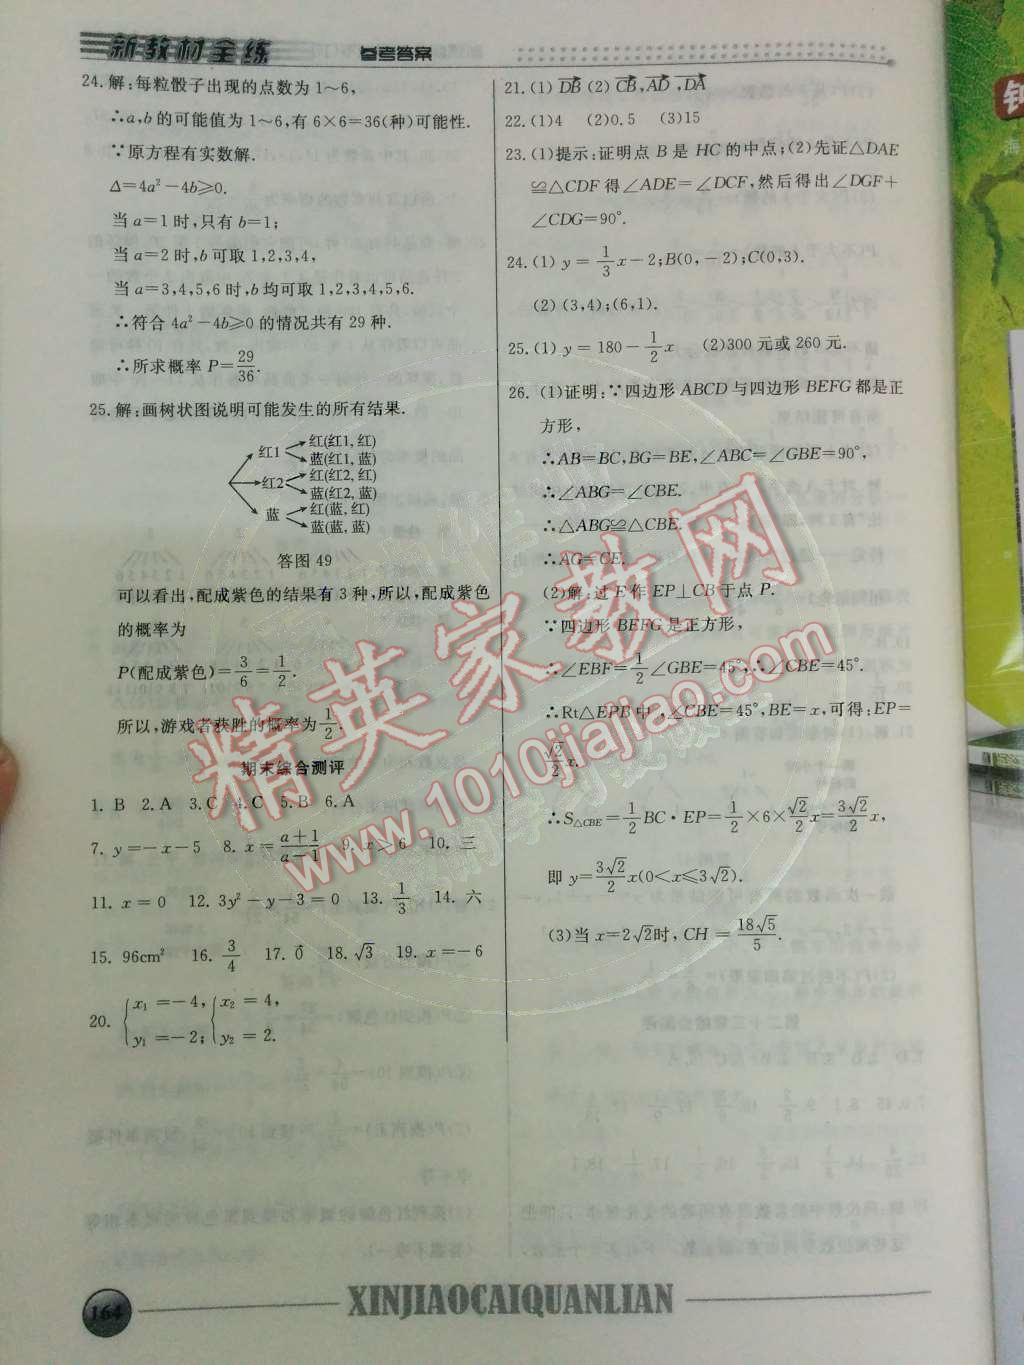 新教材全练
参考答案
24.解:每粒骰子出现的点数为1~6,
∴a,b的可能值为1~6,有6×6=36(种)可能性.
∵原方程有实数解.
Δ=4a²-4b≥0.
当a=1时,只有b=1;
当a=2时,b可取1,2,3,4,
当a=3,4,5,6时,b均可取1,2,3,4,5,6.
∴符合4a²-4b≥0的情况共有29种.
∴所求概率P=29/36.
25.解:画树状图说明可能发生的所有结果.
红1 红(红1, 红)
蓝(红1, 蓝)
红2 红(红2, 红)
蓝(红2, 蓝)
蓝 红(蓝, 红)
蓝(蓝, 蓝)
答图49
可以看出,配成紫色的结果有3种,所以,配成紫色
的概率为
P(配成紫色)=3/6=1/2.
所以,游戏者获胜的概率为1/2.
期末综合测评
1. B 2. A 3. C 4. C 5. B 6. A
7. y=-x-5 8. x=(a+1)/(a-1) 9. x≥6 10. 三
11. x=0 12. 3y²-y-3=0 13. 1/3 14. 六
15. 96cm² 16. 3/4 17. 0⃗ 18. √3 19. x=-6
20. {x₁=-4, y₁=-2; {x₂=4, y₂=2.
21.(1)DB⃗ (2)CB⃗,AD⃗,DA⃗
22.(1)4 (2)0.5 (3)15
23.(1)提示:证明点B是HC的中点;(2)先证△DAE
≌△CDF得∠ADE=∠DCF,然后得出∠DGF+
∠CDG=90°.
24.(1) y=1/3x-2;B(0,-2);C(0,3).
(2)(3,4);(6,1).
25.(1) y=180-1/2x (2)300元或260元.
26.(1)证明:∵四边形ABCD与四边形BEFG都是正
方形,
∴AB=BC,BG=BE,∠ABC=∠GBE=90°,
∴∠ABG=∠CBE.
∴△ABG≌△CBE.
∴AG=CE.
(2)解:过E作EP⊥CB于点P.
∵四边形BEFG是正方形,
∴∠EBF=1/2∠GBE=45°,∴∠CBE=45°.
∴Rt△EPB中,∠CBE=45°,BE=x,可得:EP=
√2/2x.
∴S△CBE=1/2BC·EP=1/2×6×√2/2x=3√2/2x,
即y=3√2/2x(0<x≤3√2).
(3)当x=2√2时,CH=18√5/5.
精英家教网
www.1010jiajiao.com
164
XINJIAOCAIQUANLIAN